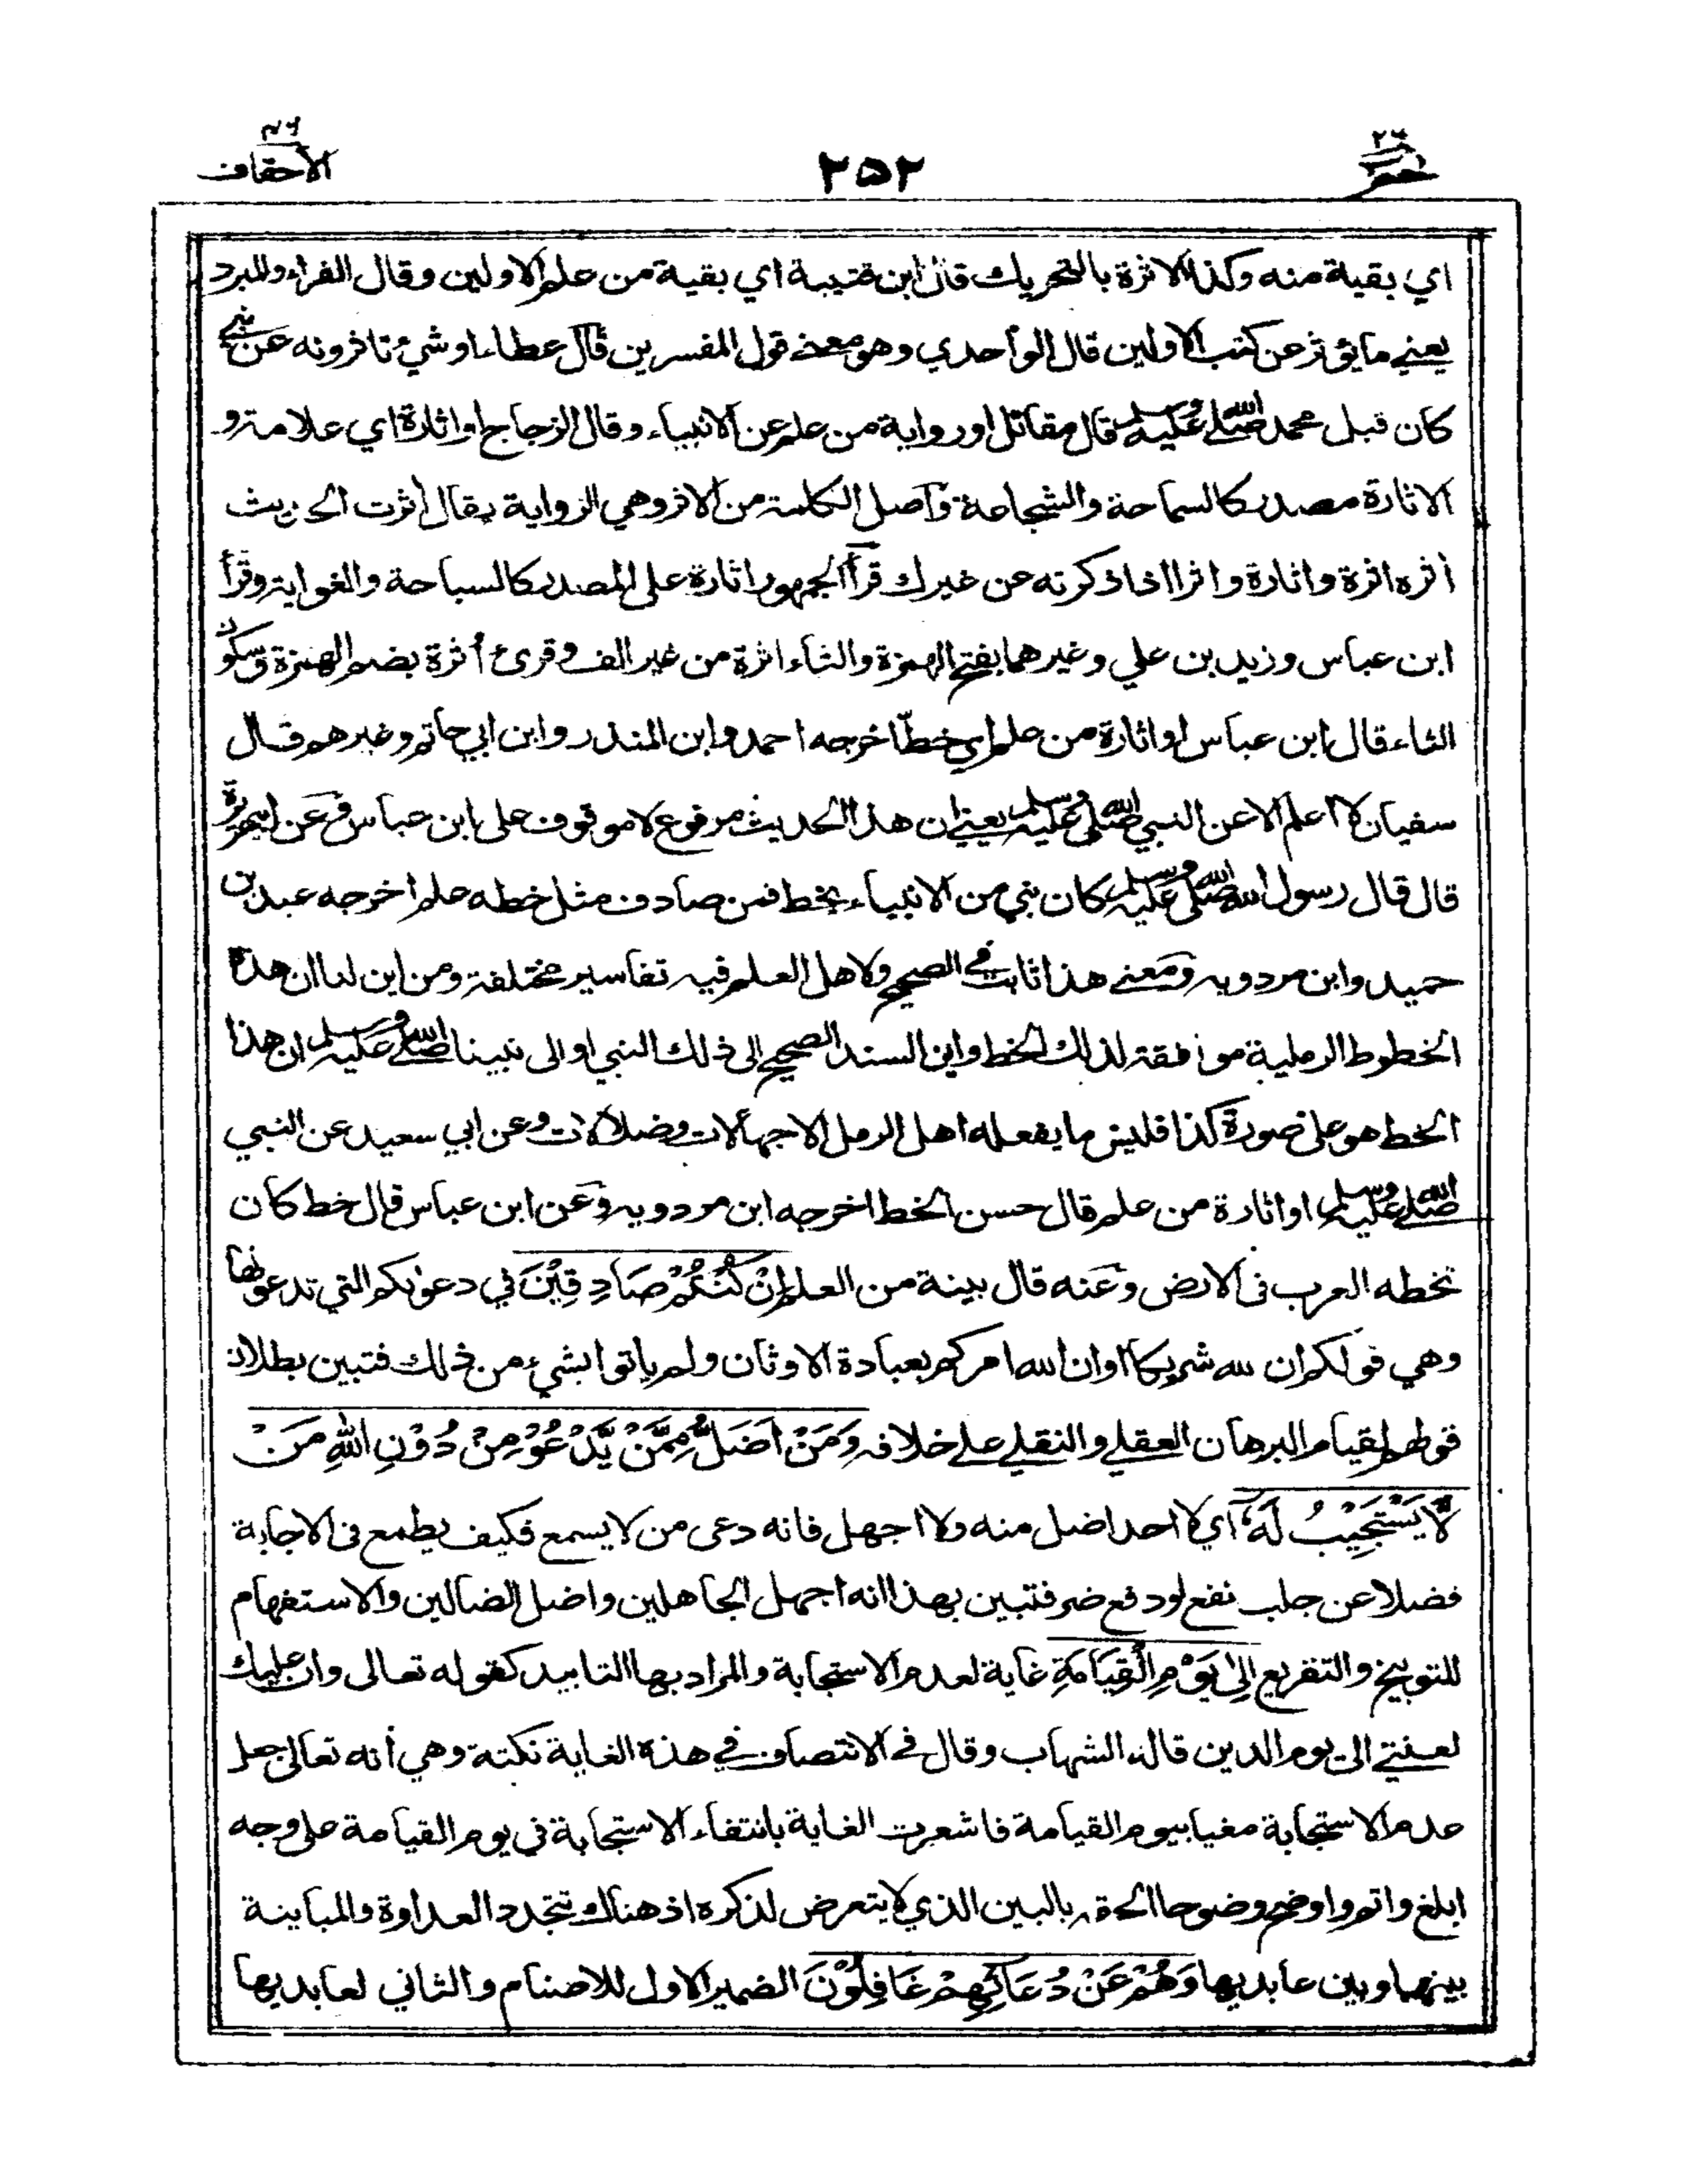 حم ٢٦
٢٥٢
الأحقاف ٤٦
اي بقية منه وكذا الاثرة بالتحريك قال ابن قتيبة اي بقية من علم الاولين وقال الفراء والمبرد
يعني ما يؤثر عن كتب الاولين قال الواحدي وهو معنى قول المفسرين قال عطاء او شيء تاثرونه عن نبي
كان قبل محمد صلى الله عليه وسلم قال مقاتل او رواية من علم عن الانبياء وقال الزجاج او اثارة اي علامة و
الاثارة مصدر كالسماحة والشجاعة واصل الكلمة من الاثر وهي الرواية يقال أثرت الحديث
أثره اثرة واثارة واثرا اذا ذكرته عن غيرك قرأ الجمهور اثارة على المصدر كالسباحة والغواية وقرأ
ابن عباس وزيد بن علي وغيرهما بفتح الهمزة والثاء اثرة من غير الف وقرئ أثرة بضم الهمزة وسكون
الثاء قال ابن عباس او اثارة من علم اي خط اخرجه احمد وابن المنذر وابن ابي حاتم وغيرهم قال
سفيان لا اعلم الا عن النبي صلى الله عليه وسلم يعني ان هذا الحديث مرفوع لا موقوف على ابن عباس وعن ابي هريرة
قال قال رسول الله صلى الله عليه وسلم كان نبي من الانبياء يخط فمن صادف مثل خطه علم اخرجه عبد بن
حميد وابن مردويه ومعنى هذا ثابت في الصحيح ولاهل العلم فيه تفاسير مختلفة ومن اين لنا ان هذه
الخطوط الرملية موافقة لذلك الخط واين السند الصحيح الى ذلك النبي او الى نبينا صلى الله عليه وسلم ان هذا
الخط هو على صورة كذا فليس ما يفعله اهل الرمل الا جهالات وضلالات وعن ابي سعيد عن النبي
صلى الله عليه وسلم او اثارة من علم قال حسن الخط اخرجه ابن مردويه وعن ابن عباس قال خط كان
تخطه العرب فى الارض وعنه قال بينة من العلم إِنْ كُنْتُمْ صَادِقِيْنَ في دعوٰىكم التي تدعونها
وهي قولكم ان لله شريكا او ان الله امركم بعبادة الاوثان ولم ياتوا بشيء من ذلك فتبين بطلان
قولهم لقيام البرهان العقلي والنقلي على خلافه وَمَنْ اَضَلُّ مِمَّنْ يَّدْعُوْ مِنْ دُوْنِ اللّٰهِ مَنْ
لَّا يَسْتَجِيْبُ لَهٗ اي لا احد اضل منه ولا اجهل فانه دعى من لا يسمع فكيف يطمع فى الاجابة
فضلا عن جلب نفع او دفع ضر فتبين بهذا انه اجهل الجاهلين واضل الضالين والاستفهام
للتوبيخ والتقريع اِلىٰ يَوْمِ الْقِيَامَةِ غاية لعدم الاستجابة والمراد بها التابيد كقوله تعالى وان عليك
لعنتي الى يوم الدين قاله الشهاب وقال في الانتصاف في هذه الغاية نكتة وهي أنه تعالى جعل
عدم الاستجابة مغيا بيوم القيامة فاشعرت الغاية بانتفاء الاستجابة في يوم القيامة على وجه
ابلغ واتم واوضح وضوحا الحقه بالبين الذي لا يتعرض لذكره اذ هناك تتجدد العداوة والمباينة
بينها وبين عابديها وَهُمْ عَنْ دُعَائِهِمْ غَافِلُوْنَ الضمير الاول للاصنام والثاني لعابديها